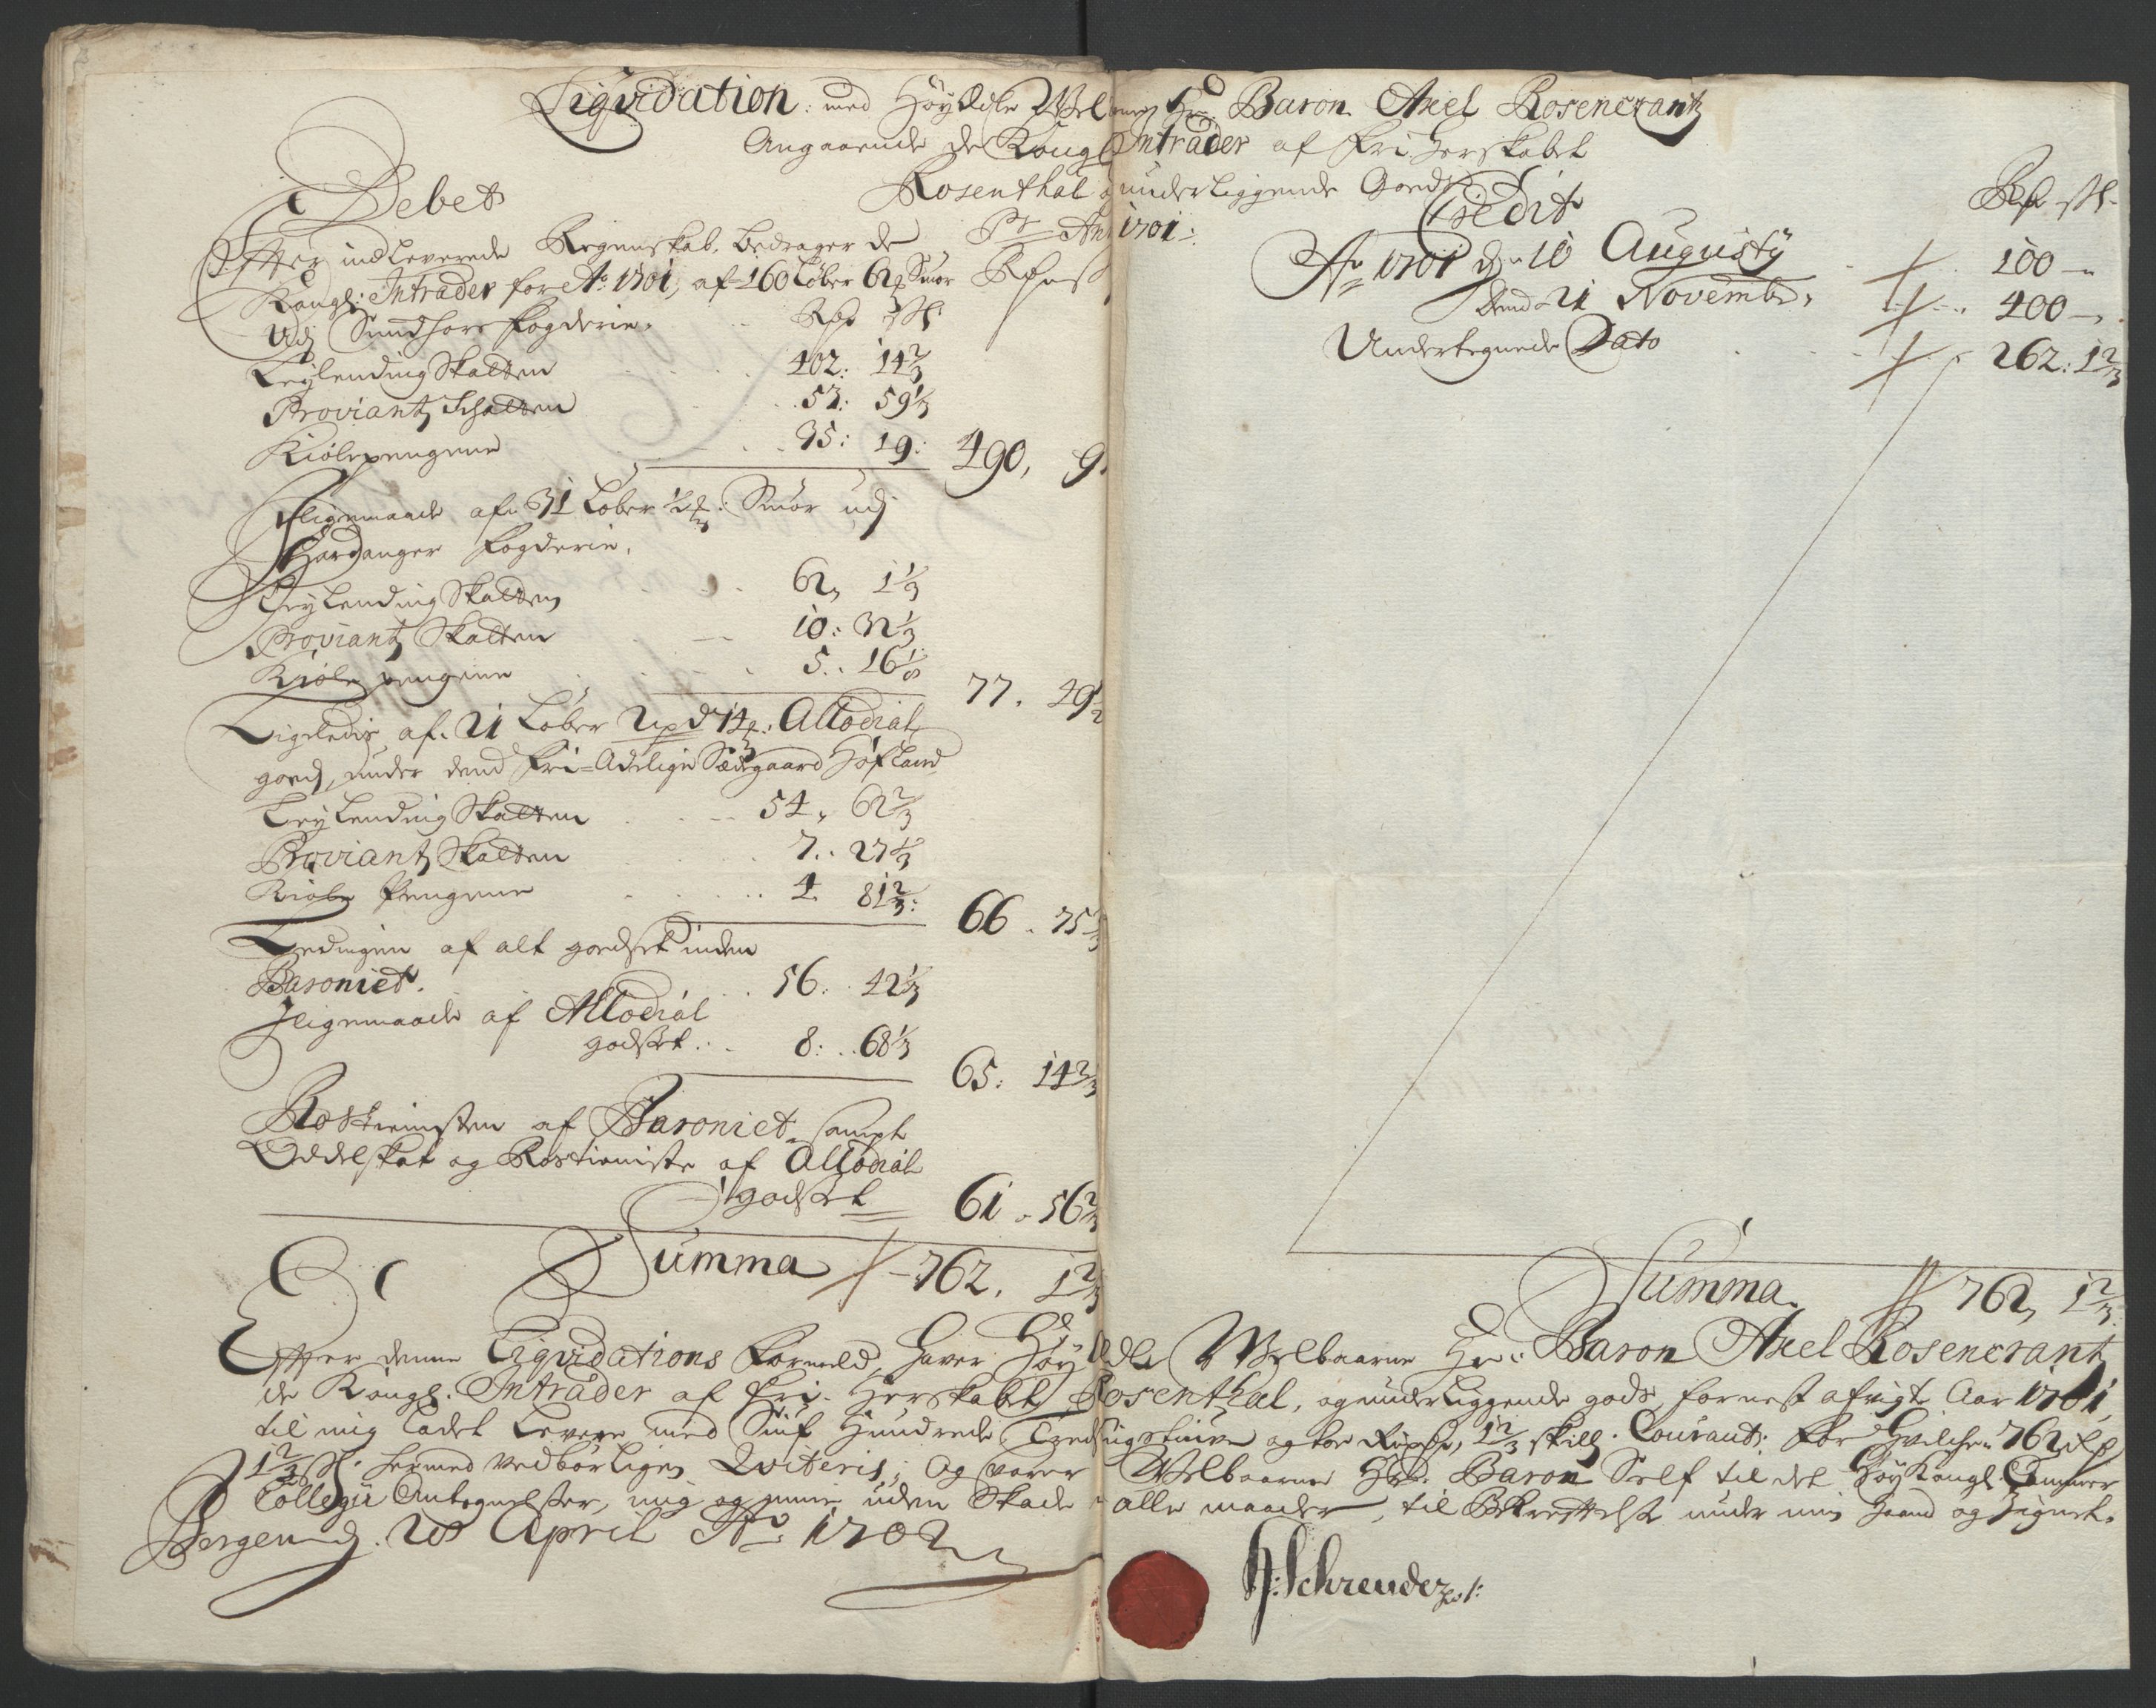 Liqvidation med HöyEdle Welbaarne Hr. Baron Axel Rosencrantz
Angaaende de Kongl: Intrader af Fri Herskabet
Rosenthal underliggende Goeds
Pr Anno 1701:
Debet
Effter indleverede Regenskab, bedrager de
Kongl: Intrader for Ao 1701, af 160 Løber 6 Smør
Udj Sundhors fogderie.
Leylending Skatten 402: 14 2/3
Proviant Schatten 53: 59 1/3
Kiølepengene 35: 19: 490, 9
Iligemaade af 31 Løber Smør udj
Hardanger fogderie,
Leylending Skatten 62, 1 1/3
Proviant Skatten 10: 32 1/3
Kiøle pengene 5: 16 77. 49
Ligeledis af 21 Løber 2 pd 14: Allodial
goeds, under dend Fri-Adelige Sædegaard Høfland
Leylending Skatten 54, 62 2/3
Proviant Skatten 7: 27 1/3
Kiøle Pengene 4 81 2/3: 66. 75
Ledingen af alt goedset inden
Baroniet. 56: 42 1/3
Iligemaade af Allodial
godset 8: 68 1/3 65: 14 2/3
Rostienisten af Baroniet, sampt
Oddelskat og Rostieniste af Allodial
godset 61. 56 2/3
Summa 762. 1 2/3
Credit
Rdr sk
Ao 1701 d. 10 Augusty 100 -
Dend 21 Novembr. 400 -
Undertegnede Dato 262: 1 2/3
Summa 762, 1 2/3
Effter denne Liqvidations formeld, haver HöyEdle Welbaarne Hr: Baron Axel Rosencrantz
de Kongl. Intrader af Fri-Herskabet Rosenthal, og underliggende gods, for nest afvigte Aar 1701,
til mig ladet levere med Siuf Hundrede Tredsingstiuve og toe Rixdr, 1 2/3 skill. Courant; For Hvilche 762 Rdr
1 2/3 sk. hermed vedbørligen Qviteris; Og svarer Welbaarne Hr. Baron Self til det Høy Kongl. Cammer
Collegii Antegnelser, mig og mine uden Skade i alle maader, til Bekreftelse under min Haand og Zignet.
Bergen d. 28 April Ao 1702
H: Schreuder